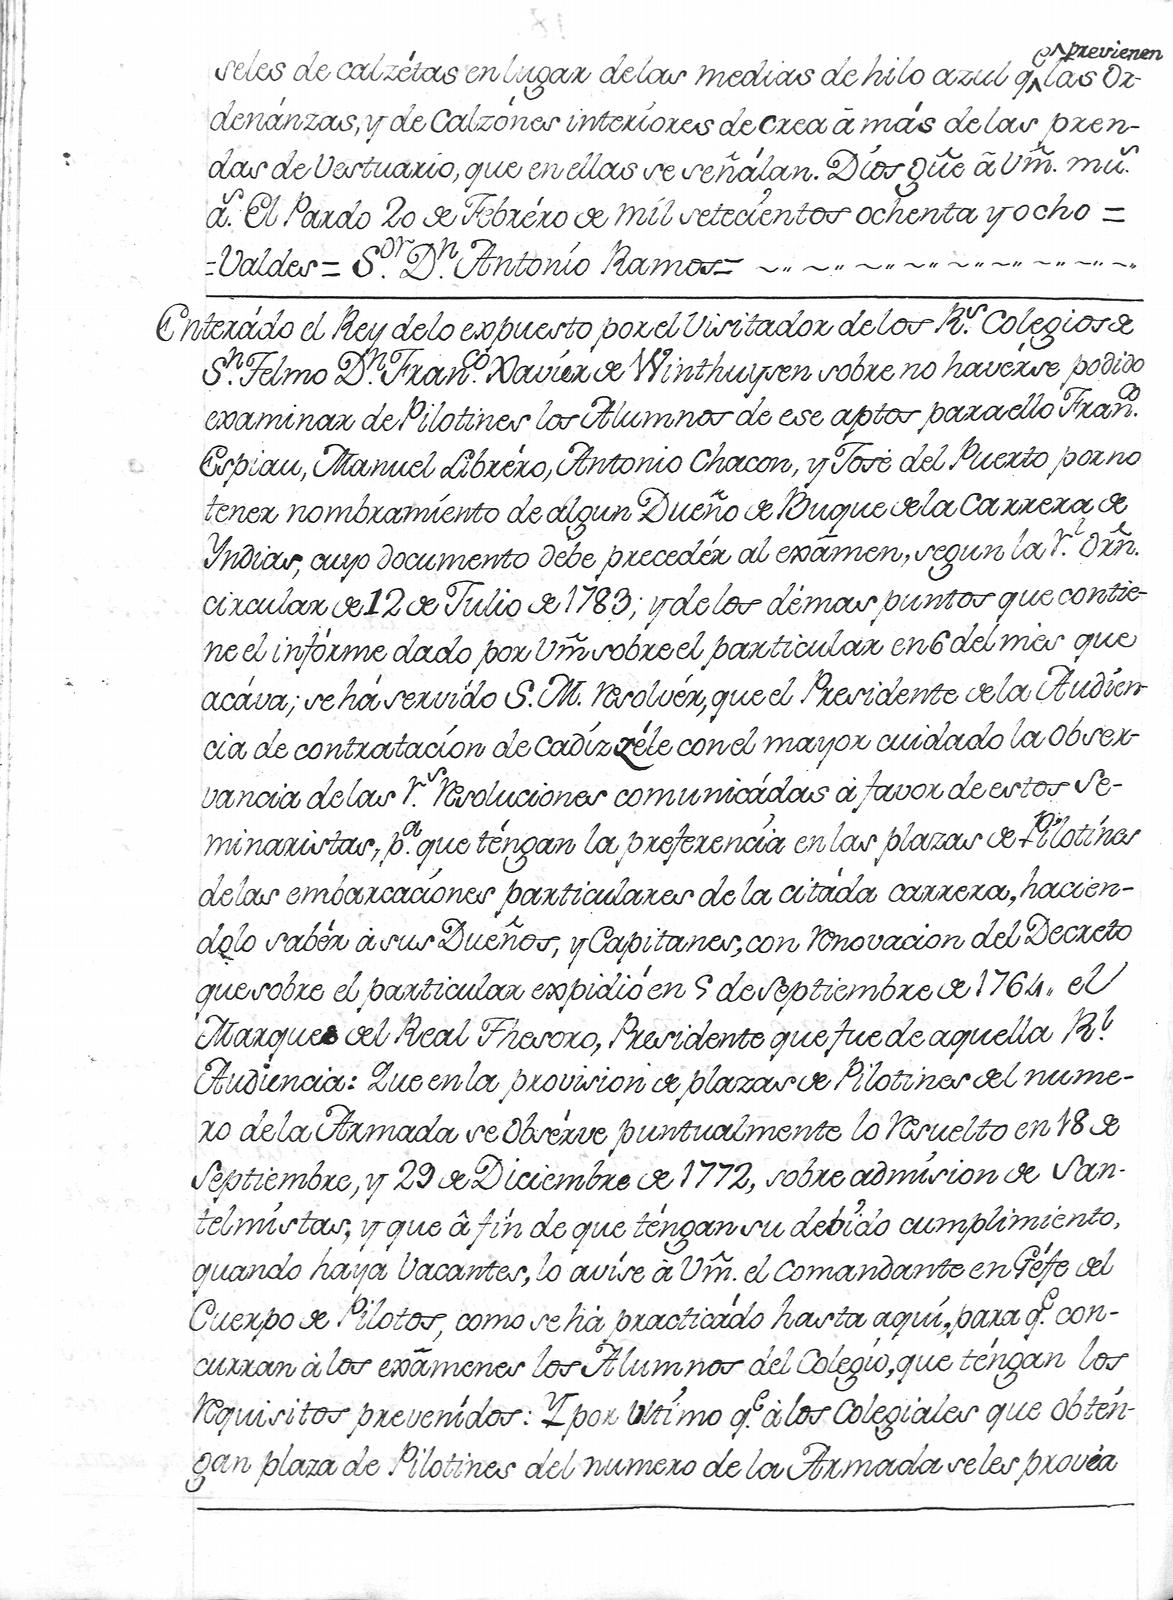 seles de calzétas en lugar delas medias de hilo azul q.e previenen las Or-
denánzas, y de Calzónes interiores de crea á más delas pren-
das de Vestuario, que en ellas se señálan. Dios gûe â Vm̃. mu.s
a.s El Pardo 20 de Febréro de mil setecientos ochenta y ocho =
=Valdes= S.or D.n Antonio Ramos=
Enterádo el Rey delo expuesto por el Visitador delos R.s Colegios de
S.n Telmo D.n Fran.co Xavier de Winthuysen sobre no havérse podido
examinar de Pilotines los Alumnos de ese aptos para ello Fran.co
Espiau, Manuel Libréro, Antonio Chacon, y José del Puerto por no
tener nombramiento de algun Dueño de Buque dela Carrera de
Yndias, cuyo documento debe precedér al exâmen, segun la r.l orñ.
circular de 12 de Julio de 1783; y delos démas puntos que contie-
ne el infórme dado por Vm̃ sobre el particular en 6 del mes que
acáva; se há servido S. M. resolvér, que el Presidente dela Audien-
cia de contratación de Cadíz zéle con el mayor cuidado la obser-
vancia delas r.s resoluciones comunicádas á favor de estos Se-
minaristas, p.a que téngan la preferencia en las plazas de Pilotínes
delas embarcaciones particulares de la citáda carrera, hacien-
dolo sabér á sus Dueños, y Capitanes, con renovacion del Decreto
que sobre el particular expidió en 5 de Septiembre de 1764. el
Marques del Real Thesoro, Presidente que fue de aquella R.l
Audiencia: Que en la provision de plazas de Pilotines del nume-
ro dela Armada se obsérve puntualmente lo resuelto en 18 de
Septiembre, y 29 de Diciembre de 1772, sobre admision de San-
telmistas, y que â fin de que téngan su debido cumplimiento,
quando haya Vacantes, lo avise à Vm̃. el Comandante en Géfe del
Cuerpo de Pilotos, como se há practicádo hasta aquí, para q.e con-
curran à los exâmenes los Alumnos del Colegio, que téngan los
requisitos prevenidos: Y por ultimo q.e à los Colegiales que obtén-
gan plaza de Pilotines del numero de la Armada se les provéa